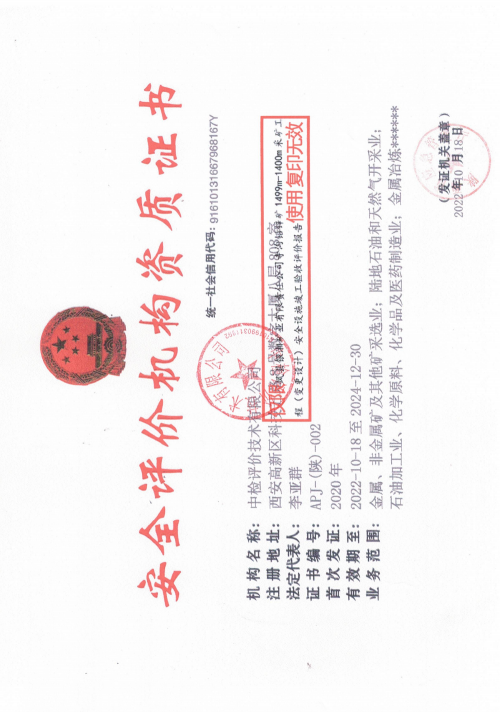 安全评价机构资质证书
统一社会信用代码：91610131667968167Y
机构名称：中检评价技术有限公司
注册地址：西安高新区科
法定代表人：李亚群
证书编号：APJ-(陕)-002
首次发证：2020年
有效期至：2022-10-18至2024-12-30
业务范围：金属、非金属矿及其他矿采选业；陆地石油和天然气开采业；
石油加工业、化学原料、化学品及医药制造业；金属冶炼******
（发证机关盖章）
2022年10月18日
矿1499m-1400m采矿工
程（变更设计）安全设施竣工验收评价报告
使用复印无效
术有限公司